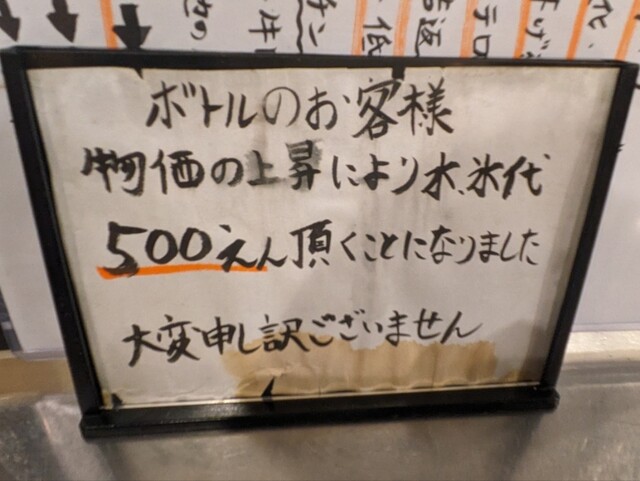 ボトルのお客様
物価の上昇により水、氷代
500えん頂くことになりました
大変申し訳ございません